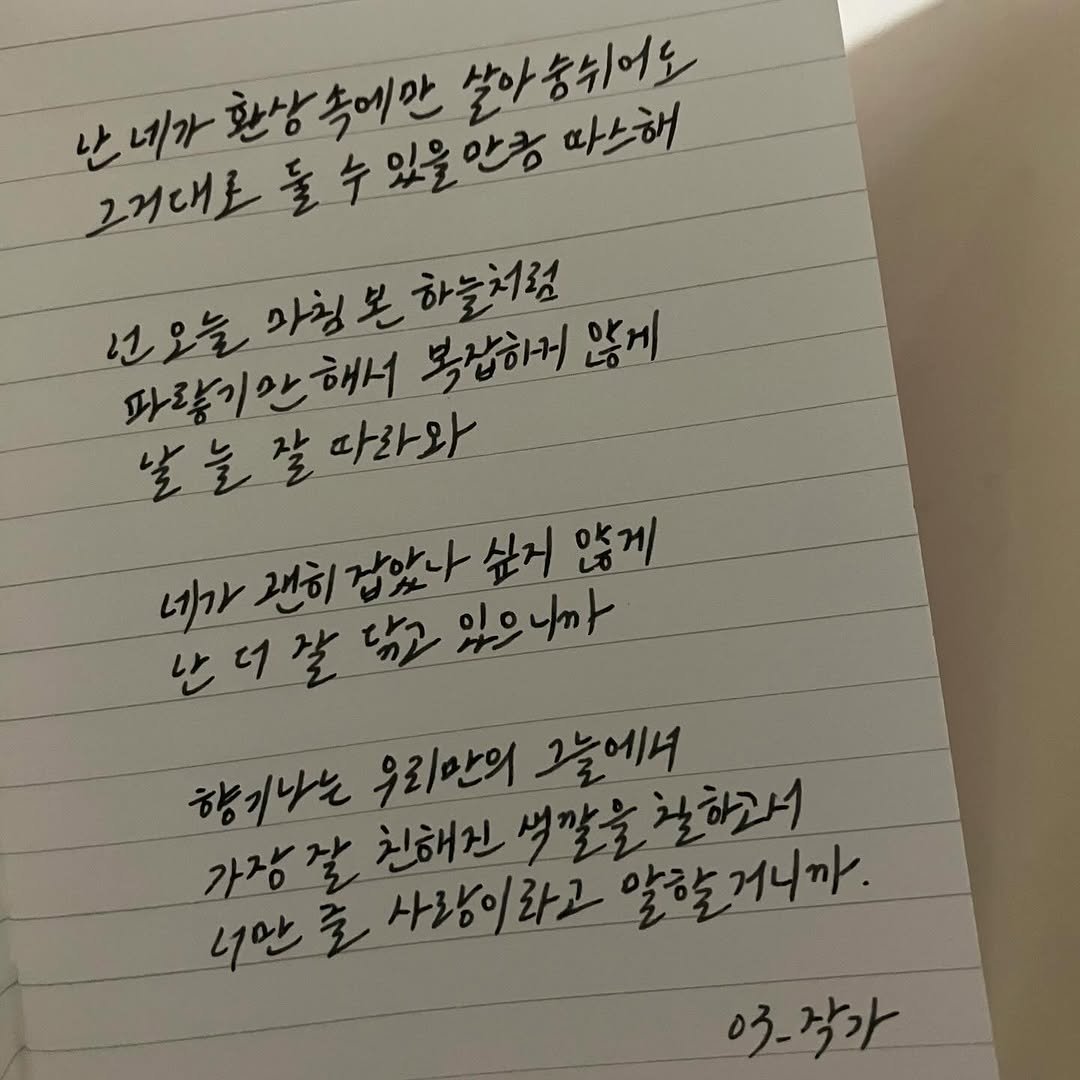 난 네가 환상 속에만 살아 숨쉬어도
그거대로 둘 수 있을만큼 따스해
넌 오늘 아침 본 하늘처럼
파랗기만 해서 복잡하지 않게
날 늘 잘 따라와
네가 괜히 잡았나 싶지 않게
난 더 잘 닦고 있으니까
향기나는 우리만의 그늘에서
가장 잘 친해진 색깔을 칠하고서
너만 줄 사랑이라고 말할거니까.
야구_작가